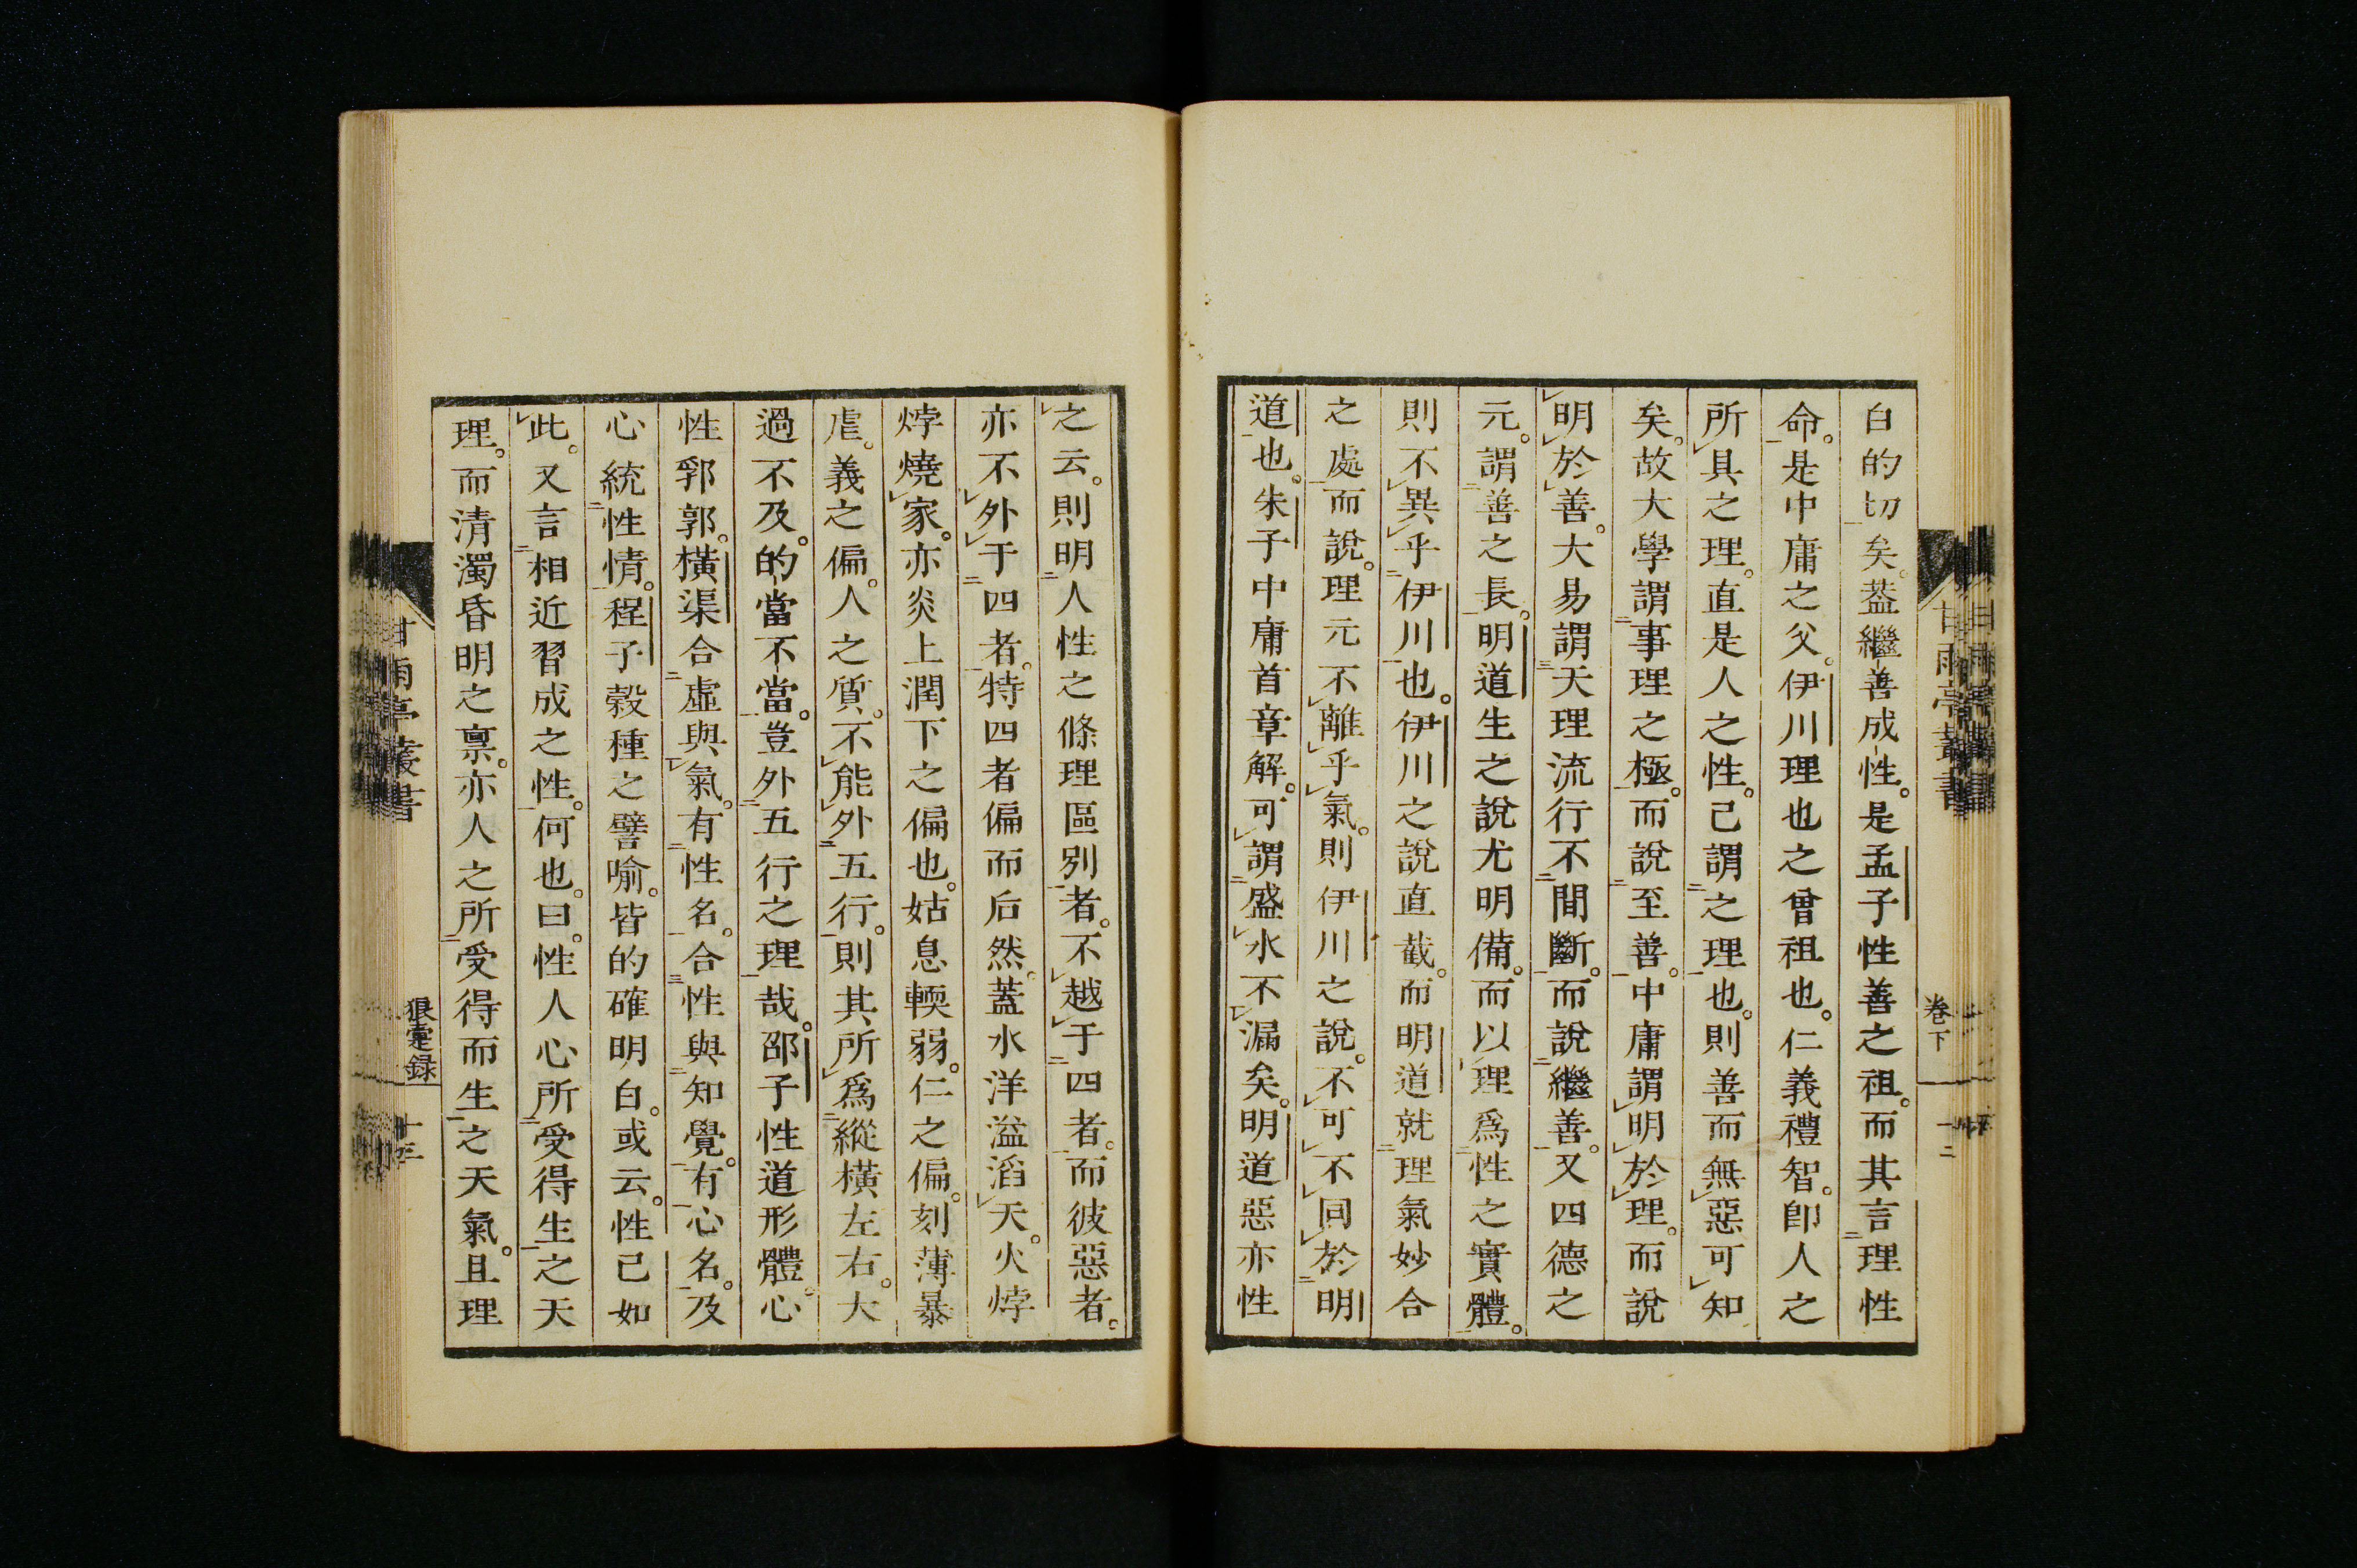 白的切矣。葢繼善成性。是孟子性善之祖。而其言理性
命。是中庸之父。伊川理也之曾祖也。仁義禮智。卽人之
所具之理。直是人之性。已謂之理也。則善而無惡可知
矣。故大學謂事理之極。而說至善。中庸謂明於理。而說
明於善。大易謂天理流行不間斷。而說繼善。又四德之
元。謂善之長。明道生之說尤明備。而以理爲性之實體。
則不異乎伊川也。伊川之說直截。而明道就理氣妙合
之處而說。理元不離乎氣。則伊川之說。不可不同於明
道也。朱子中庸首章解。可謂盛水不漏矣。明道惡亦性
之云。則明人性之條理區別者。不越于四者。而彼惡者。
亦不外于四者。特四者偏而后然。蓋水洋溢滔天。火烰
烰燒家。亦炎上潤下之偏也。姑息輭弱。仁之偏。刻薄暴
虐。義之偏。人之質。不能外五行。則其所爲縱橫左右。大
過不及。的當不當。豈外五行之理哉。邵子性道形體。心
性郛郭。橫渠合虛與氣。有性名。合性與知覺。有心名。及
心統性情。程子穀種之譬喻。皆的確明白。或云。性已如
此。又言相近習成之性。何也。曰。性人心所受得生之天
理。而清濁昏明之禀。亦人之所受得而生之天氣。且理
卷下
十二
甘雨亭叢書
甘雨亭叢書
狼疐録
十三